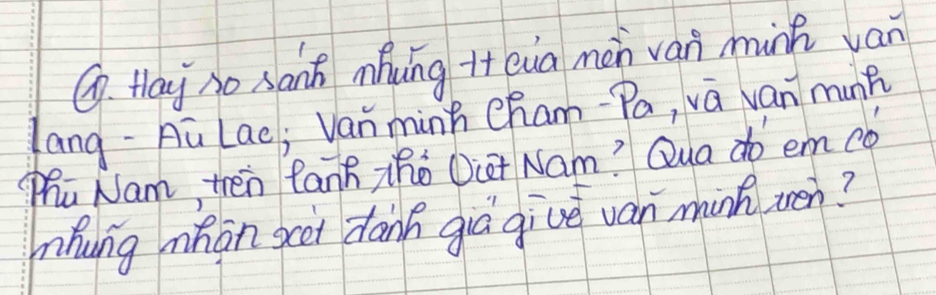 G. Hãy so sánh những tt của nền văn minh văn
Lang - Âu Lạc; Văn minh Cham-Pa, và văn minh
Phù Nam, trên lãnh thổ Việt Nam? Qua đó em có
những nhận xét đánh giá gì về văn minh trên?